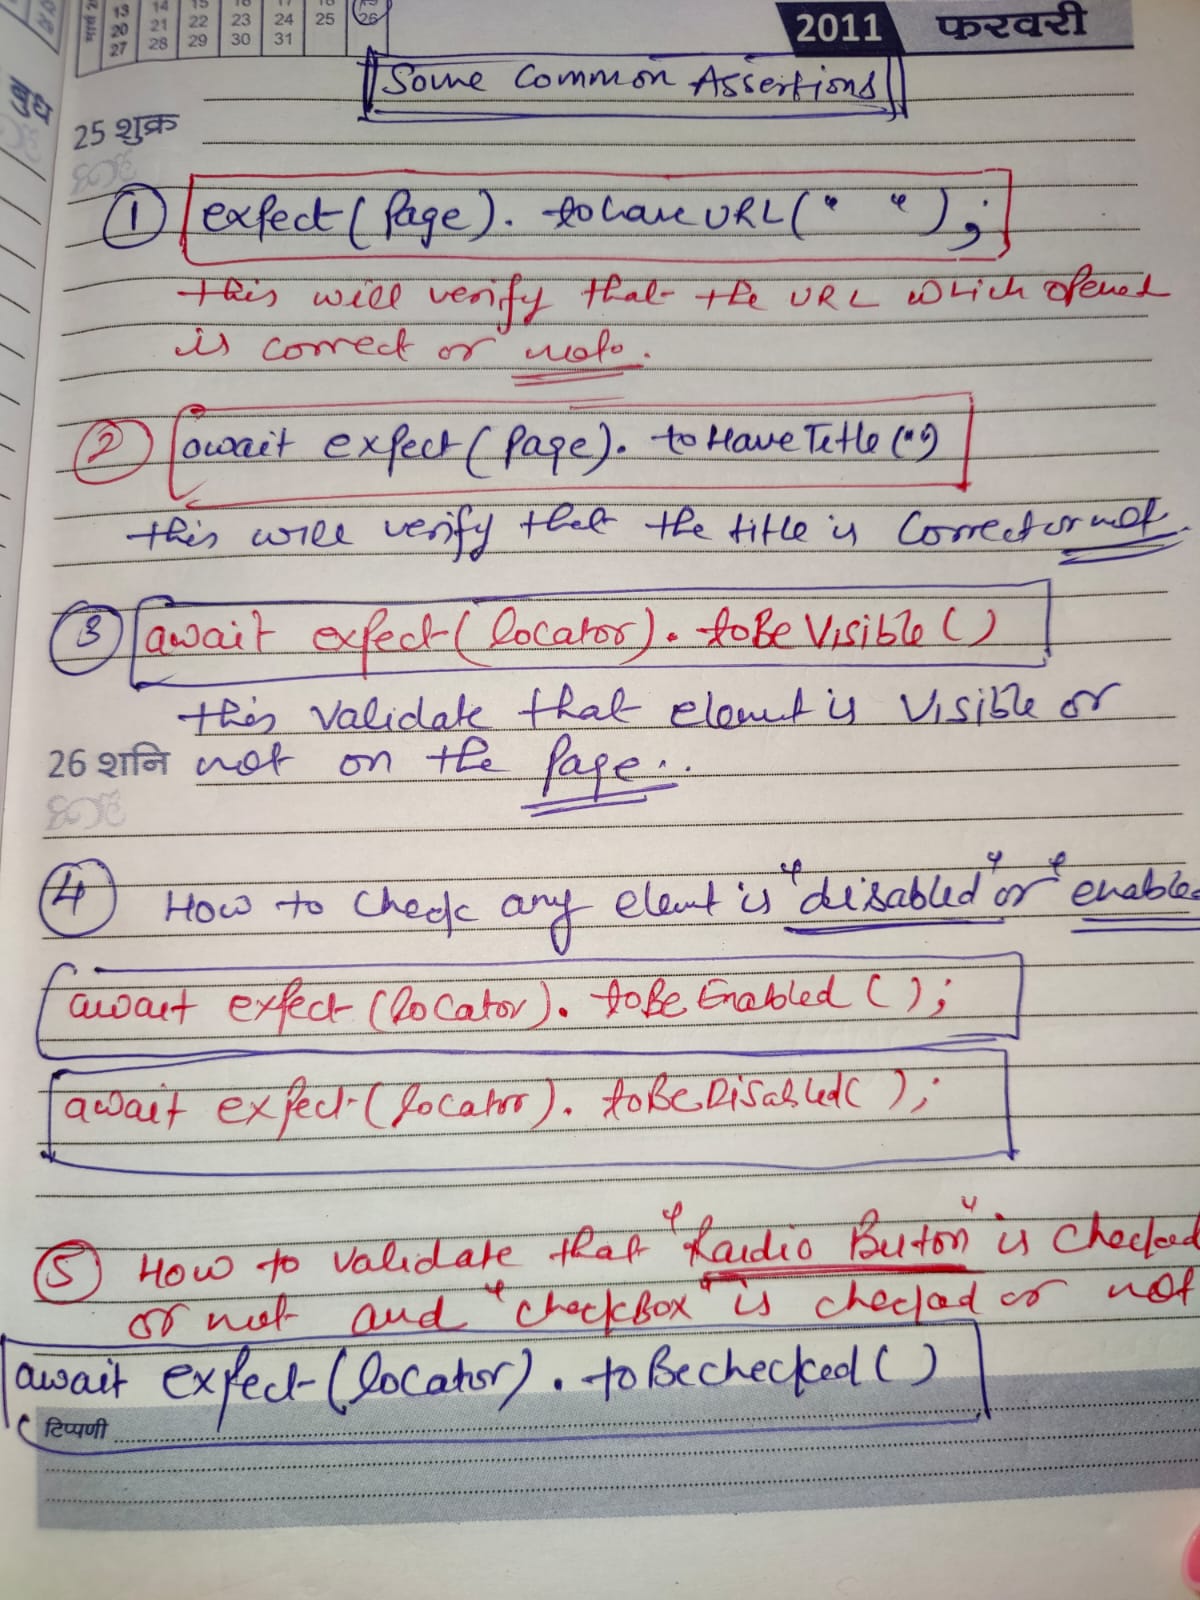 13 20 27
14 21 28
15 22 29
16 23 30
17 24 31
18 25
26
2011 फरवरी
Some Common Assertions
25 शुक्र
① expect(Page). tohave URL(" ");
this will verify that the URL which opened
is correct or not.
② await expect(Page). toHaveTitle("")
this will verify that the title is Correct or not
③ await expect(locator). toBeVisible()
this validate that elemnt is Visible or
26 शनि not on the Page..
④ How to check any elemnt is "disabled" or "enable
await expect(locator). toBeEnabled();
await expect(locator). toBeDisabled();
⑤ How to validate that "Raidio Buton" is checked
or not and "checkBox" is checked or not
await expect(locator). toBechecked()
टिप्पणी